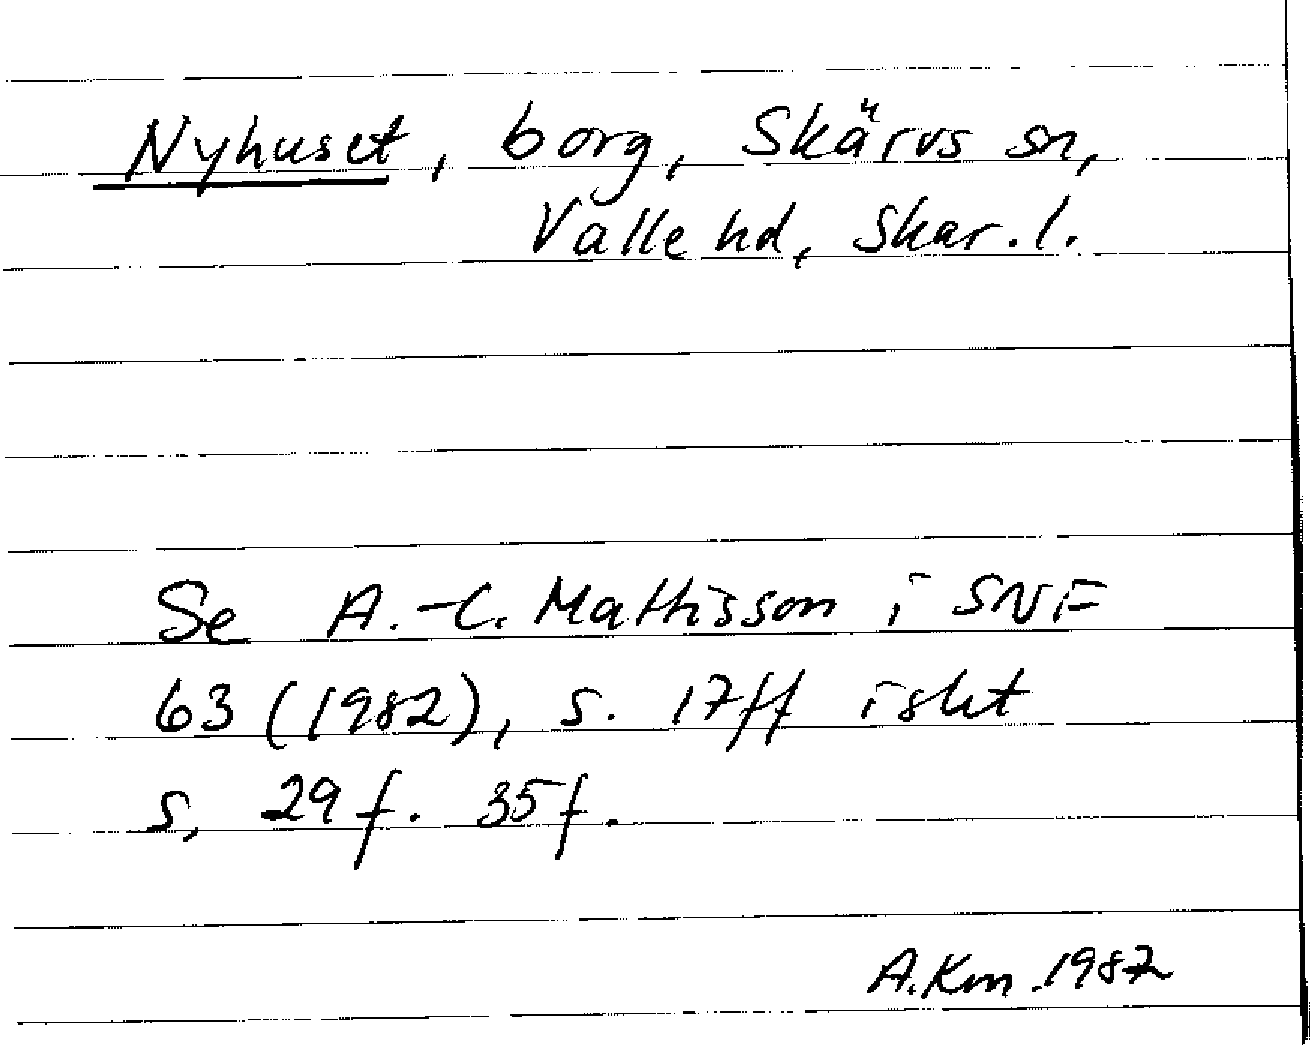 Nyhuset, borg, Skärvs sn,
Valle hd, Skar. l.
Se A.-C. Mattisson i SNF
63 (1982), s. 17ff iskt
s. 29f. 35f.
A.Km.1987